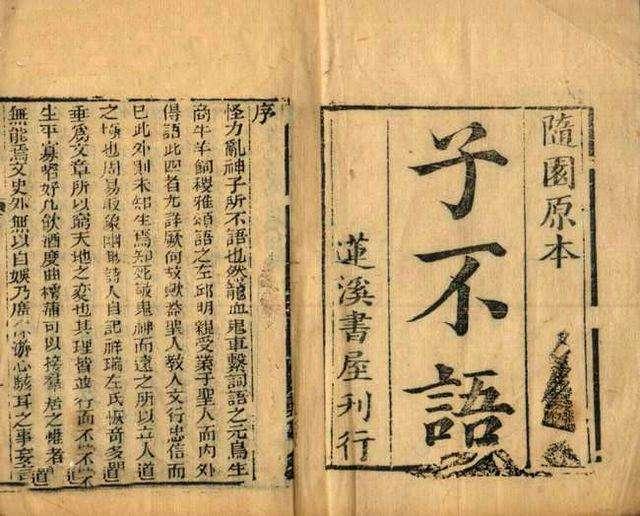 隨園原本
子不語
蓮溪書屋刊行
序
怪力亂神子所不語也然龍血鬼車繫詞語之元鳥生
商牛羊飼稷雅頌語之左邱明親受業于聖人而內外
傳語此四者尤詳厥何故歟蓋聖人教人文行忠信而
已此外則未知生焉知死敬鬼神而遠之所以立人道
之極也周易取象幽眇詩人自記祥瑞左氏恢奇多聞
垂爲文章所以窮天地之変也其理皆並行而不
生平寡嗜好凡飲酒度曲樗蒲可以接羣居之
無能焉文史外無以自娛乃廣游心駭耳之事妄言